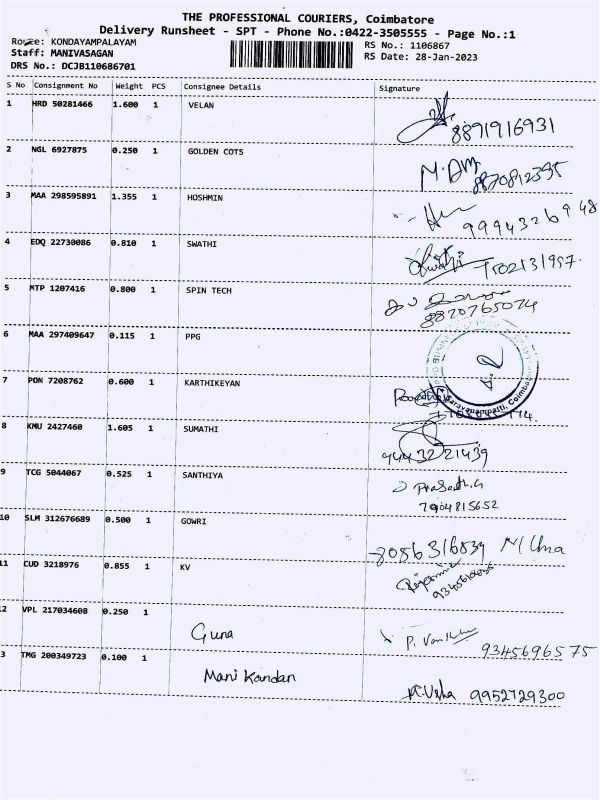 THE PROFESSIONAL COURIERS, Coimbatore
Delivery Runsheet - SPT - Phone No.:0422-3505555 - Page No.:1
Route: KONDAYAMPALAYAM
RS No.: 1106867
Staff: MANIVASAGAN
RS Date: 28-Jan-2023
DRS No.: DCJB110686701
S No Consignment No Weight PCS Consignee Details Signature
1 HRD 50281466 1.600 1 VELAN
8891916931
2 NGL 6927875 0.250 1 GOLDEN COTS
8820812395
3 MAA 298595891 1.355 1 HOSHMIN
9994326948
4 EDQ 22730086 0.810 1 SWATHI
Swathi
5 MTP 1207416 0.800 1 SPIN TECH
8820765074
6 MAA 297409647 0.115 1 PPG
Saravanampatti, Coimbatore
7 PON 7208762 0.600 1 KARTHIKEYAN
8 KMU 2427460 1.605 1 SUMATHI
9443221439
9 TCG 5044067 0.525 1 SANTHIYA
Prasath.G
7904815652
10 SLM 312676689 0.500 1 GOWRI
8056316839
11 CUD 3218976 0.855 1 KV
2 VPL 217034608 0.250 1
Guna P. 9345696575
3 TMG 200349723 0.100 1
Mani Kandan Usha 9952729300